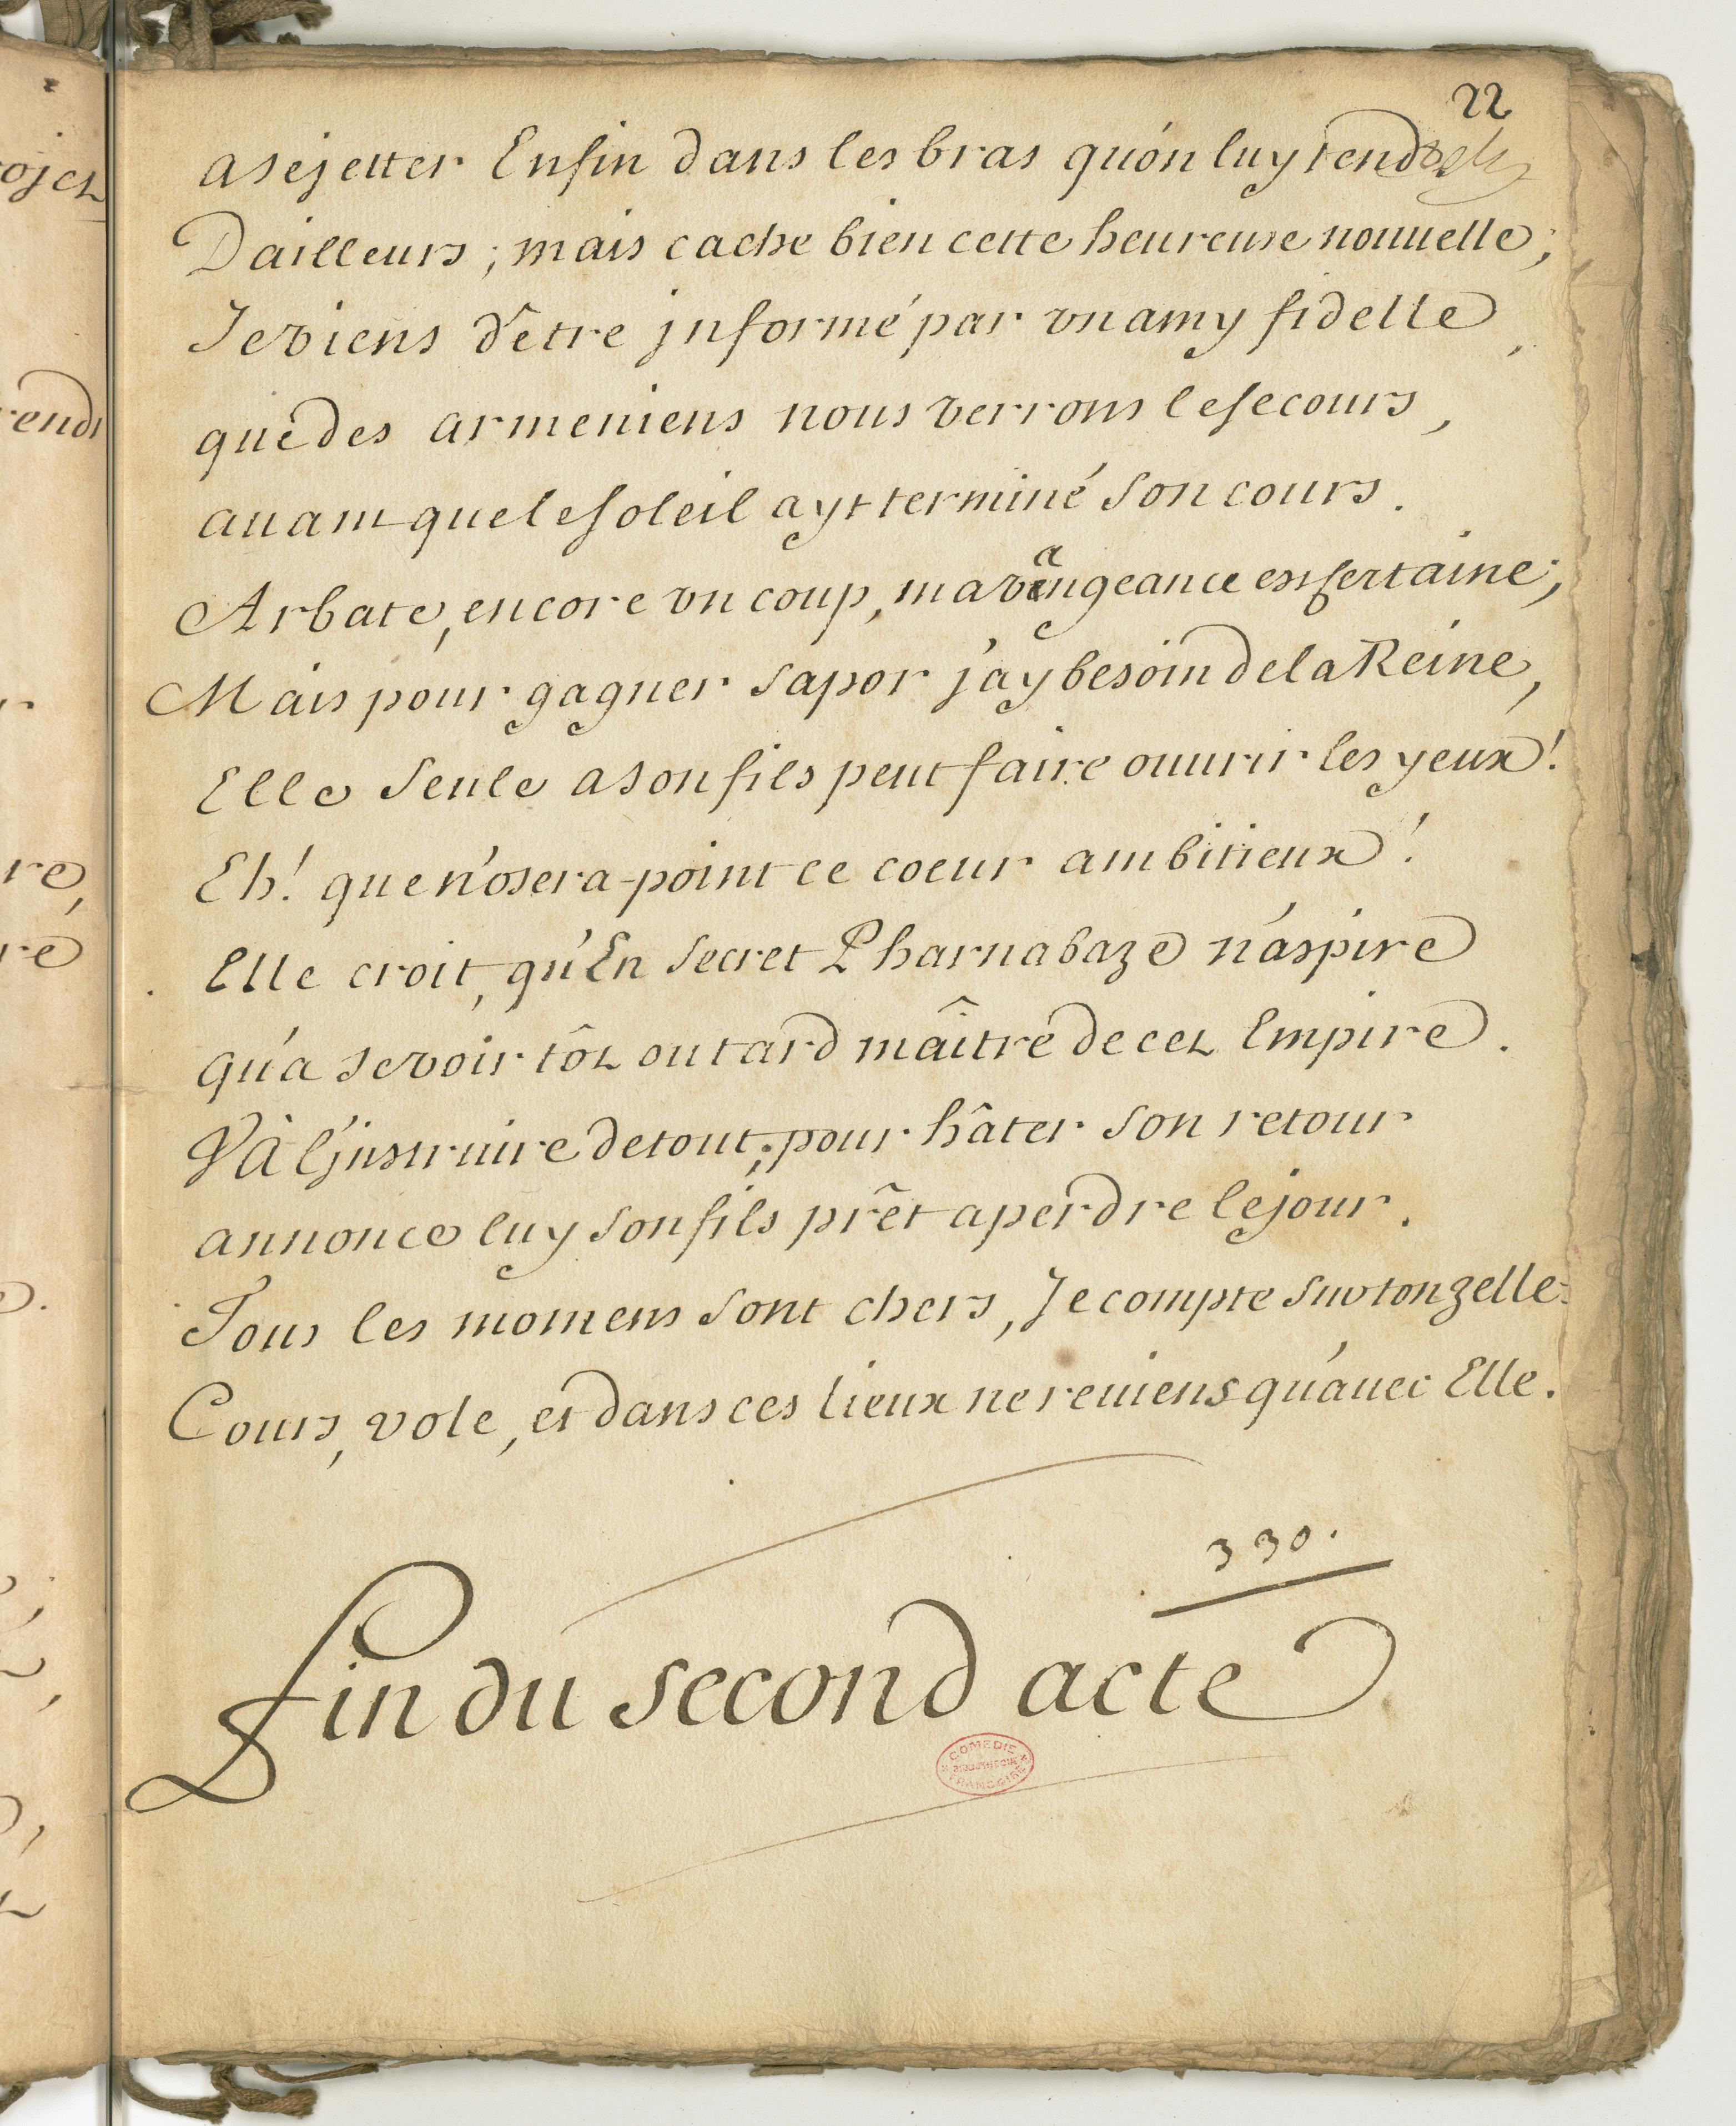 22
a se jetter Enfin dans les bras qu'on luy tend
D'ailleurs; mais cache bien cette heureuse nouuelle;
Je viens d'être jnformé par vn amy fidelle,
que des armeniens nous verrons le secours,
auant que le soleil ayt terminé son cours.
Arbate, encore vn coup, ma vangeance est certaine;
Mais pour gagner sapor j'ay besoin de la Reine,
Elle seule a son fils peut faire ouurir les yeux!
Eh! que n'osera-point ce coeur ambitieux!
Elle croit, qu'En secret Pharnabaze n'aspire
qu'a se voir tôt ou tard maître de cet Empire.
Và l'jnstruire de tout; pour hâter son retour
annonce luy son fils prêt a perdre le jour.
Tous les momens sont chers, Je compte sur ton zelle:
Cours, vole, et dans ces lieux ne reuiens qu'auec Elle.
330.
fin du second acte
COMEDIE FRANCAISE
ojet
rends
re,
re